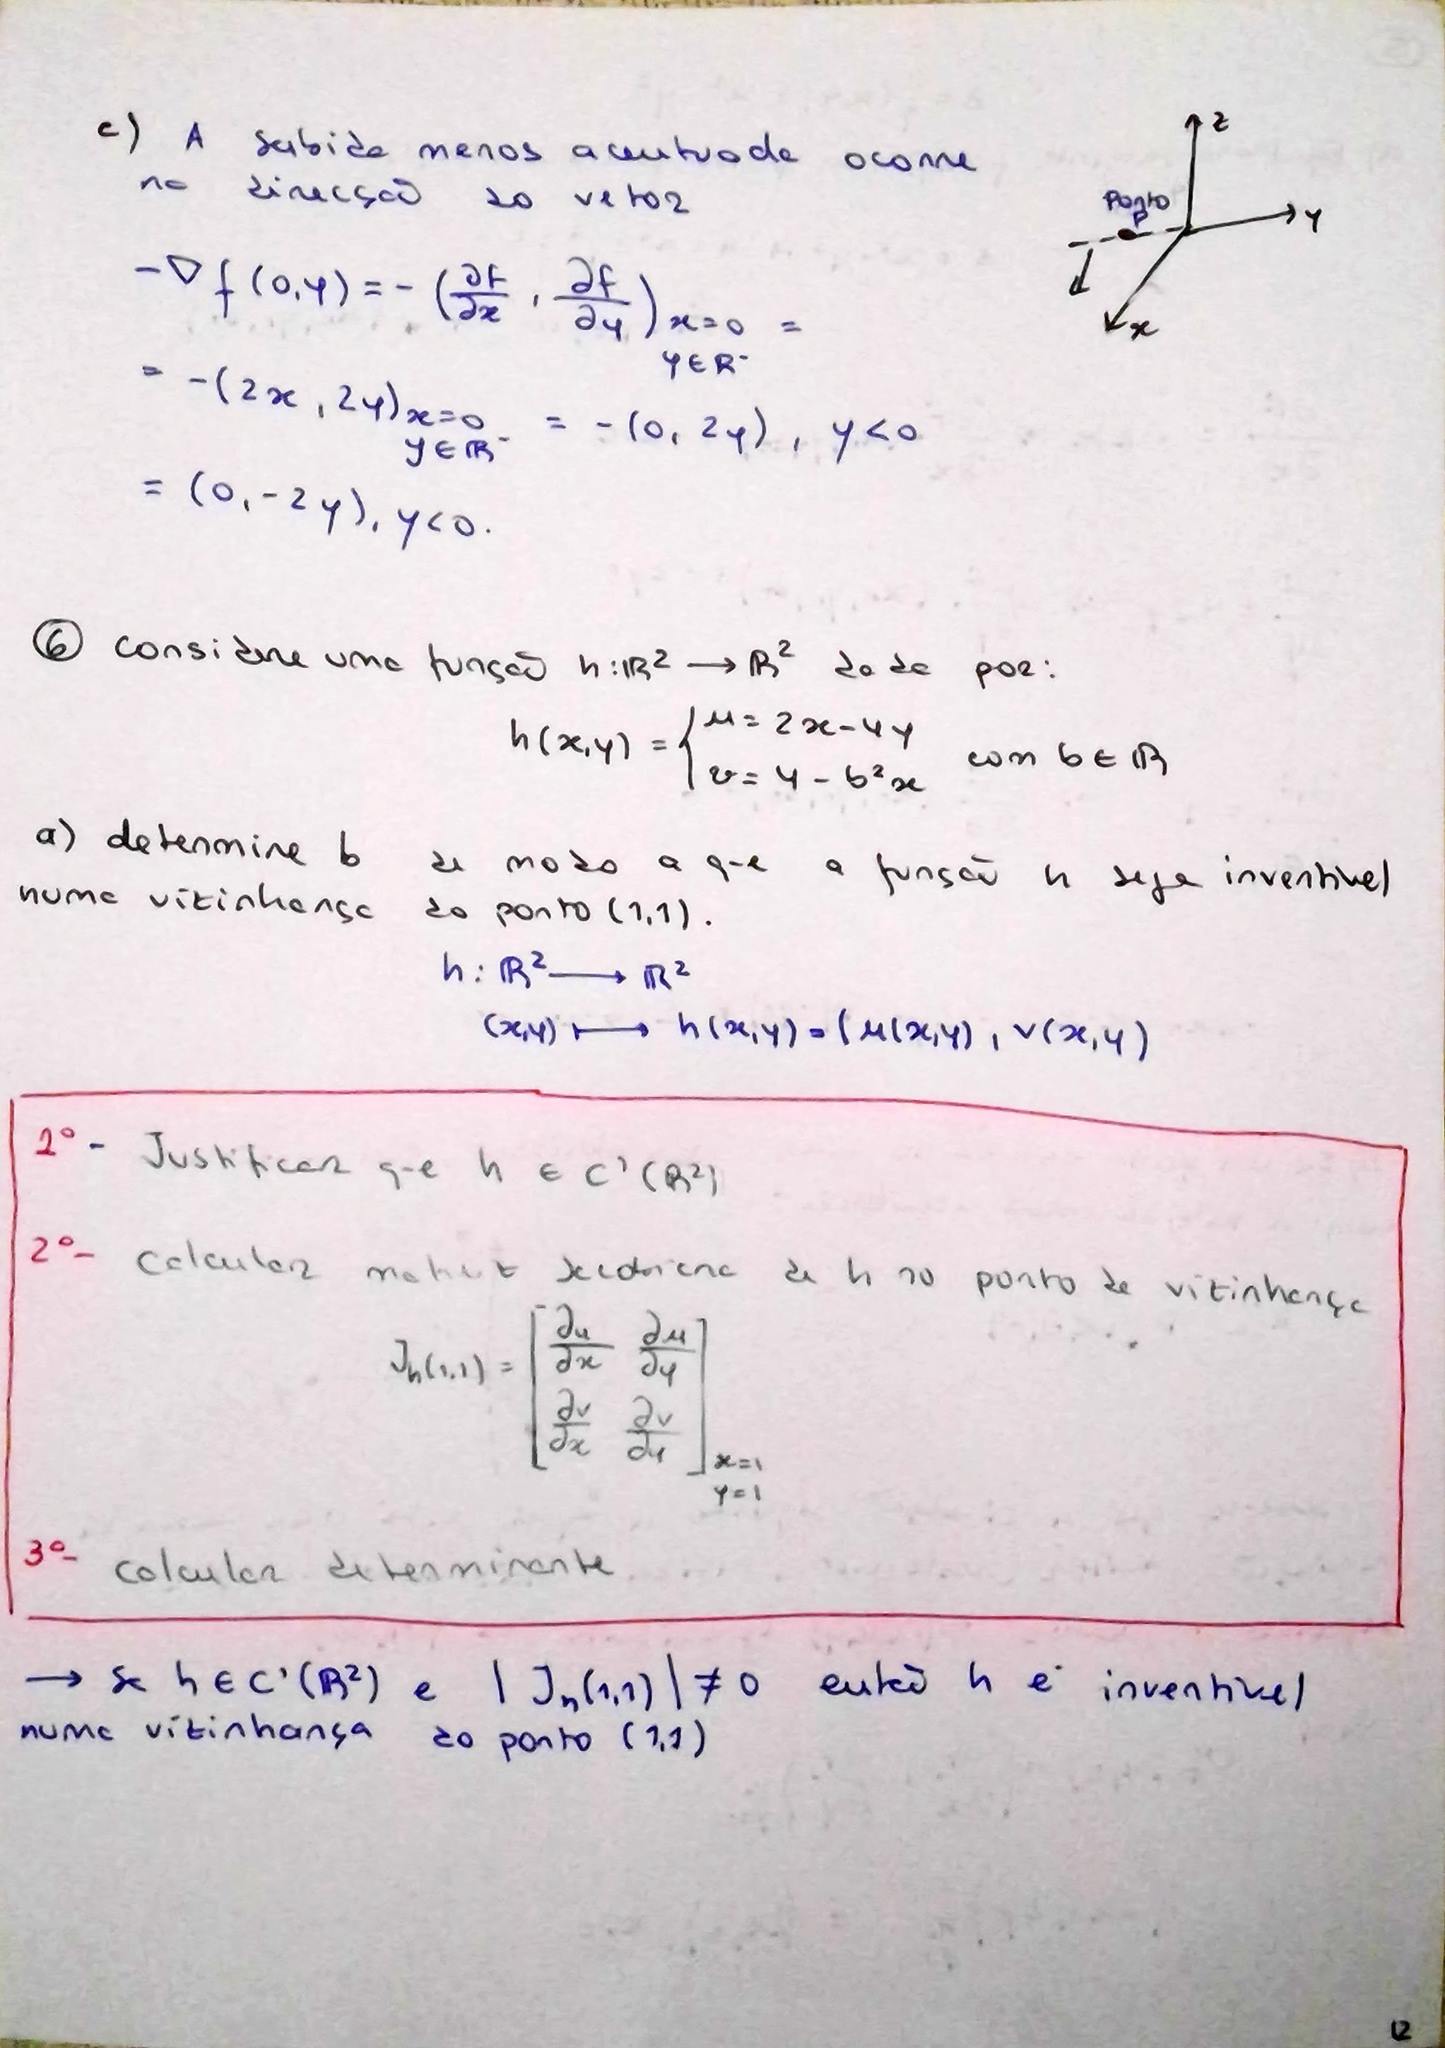 c) A subida menos acentuada ocorre
na direcção do vetor
z
Ponto
P
y
x
-∇f(0,y) = -(∂f/∂x, ∂f/∂y) x=0 =
y∈R⁻
= -(2x, 2y) x=0 = -(0, 2y), y<0
y∈R⁻
= (0, -2y), y<0.
⑥ considere uma função h: R² → R² dada por:
h(x,y) = { u = 2x-4y
v = y - b²x com b ∈ R
a) determine b de modo a que a função h seja invertível
numa vizinhança do ponto (1,1).
h: R² → R²
(x,y) ↦ h(x,y) = (u(x,y), v(x,y)
1º - Justificar que h ∈ C'(R²)
2º - Calcular matriz Jacobiana de h no ponto de vizinhança
Jh(1,1) = [ ∂u/∂x ∂u/∂y
∂v/∂x ∂v/∂y ] x=1
y=1
3º - calcular determinante
→ Se h ∈ C'(R²) e | Jh(1,1) | ≠ 0 então h é invertível
numa vizinhança do ponto (1,1)
12